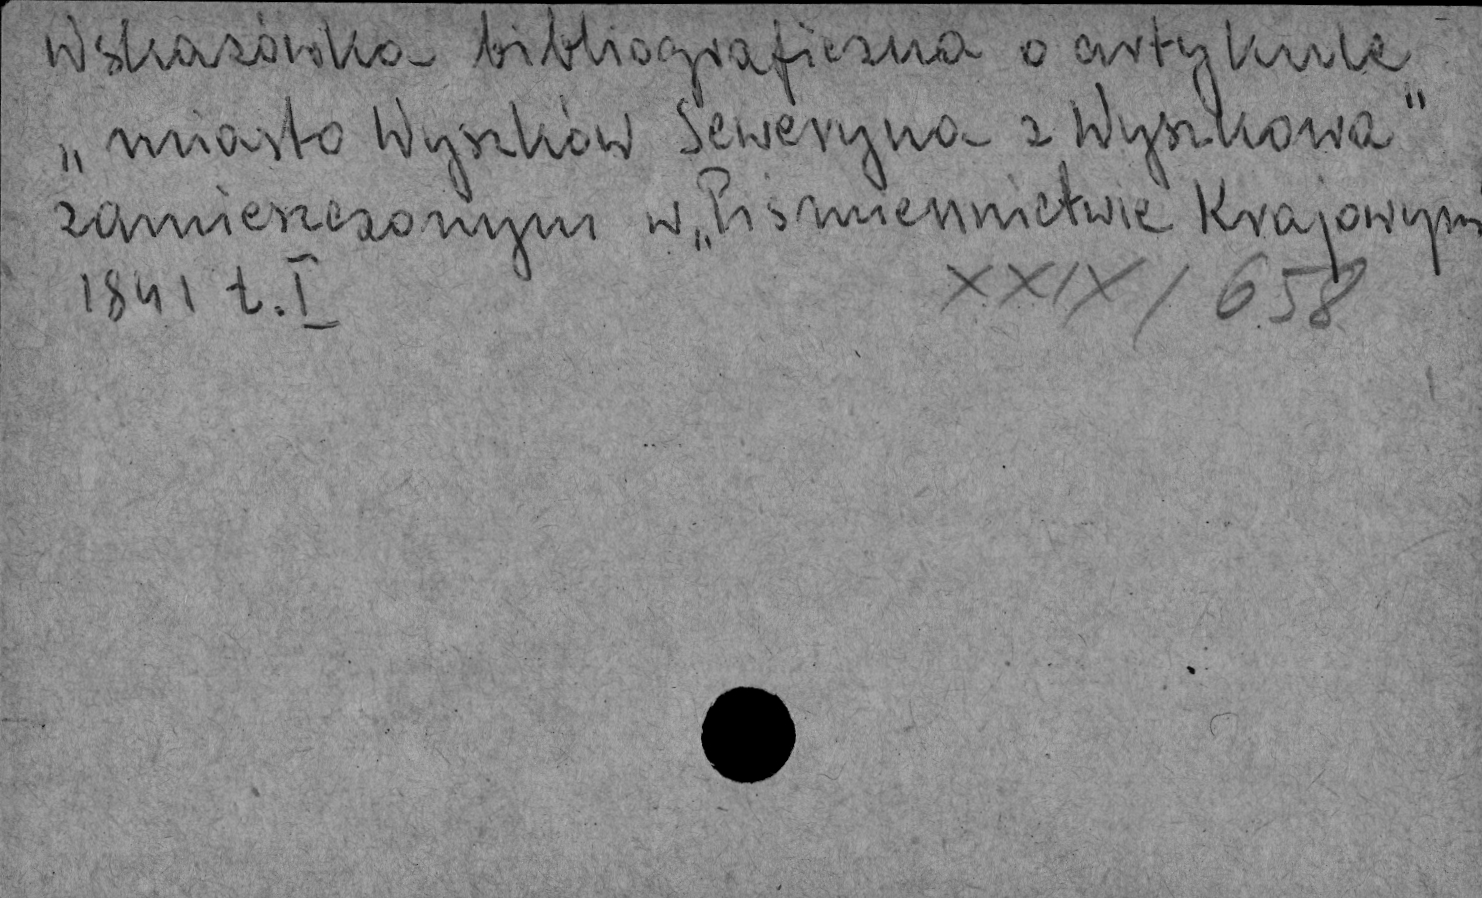 Wskazówka bibliograficzna o artykule
„miasto Wyszków Seweryna z Wyszkowa"
zamieszczonym w „Piśmiennictwie Krajowym
1841 t. I
XXIX / 658